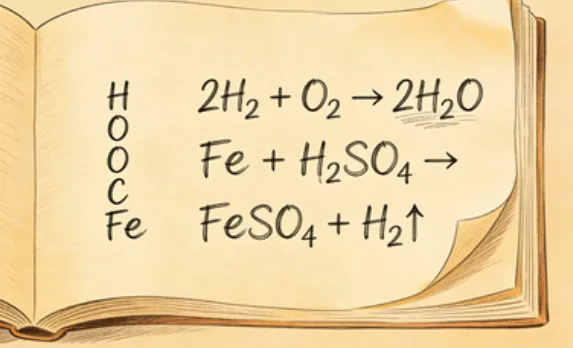 H
O
O
C
Fe
2H₂ + O₂ → 2H₂O
Fe + H₂SO₄ →
FeSO₄ + H₂↑